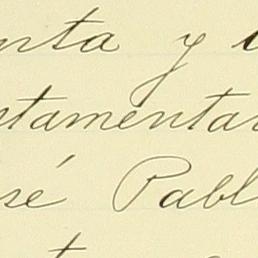 nta y
stamentar
sé Pabl